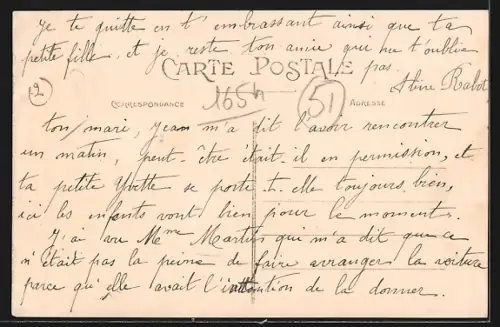 je te quitte en t'embrassant ainsi que ta
petite fille, et je reste ton amie qui ne t'oublie
pas.
CARTE POSTALE
CORRESPONDANCE
ADRESSE
2
1654
51
ton mari, Jean m'a dit l'avoir rencontrer
un matin, peut-être était-il en permission, et
ta petite Yvette se porte-t-elle toujours bien,
ici les enfants vont bien pour le moment.
J'ai vu Mme Martin qui m'a dit que ce
n'était pas la peine de faire arranger la voiture
parce qu'elle avait l'intention de la donner.